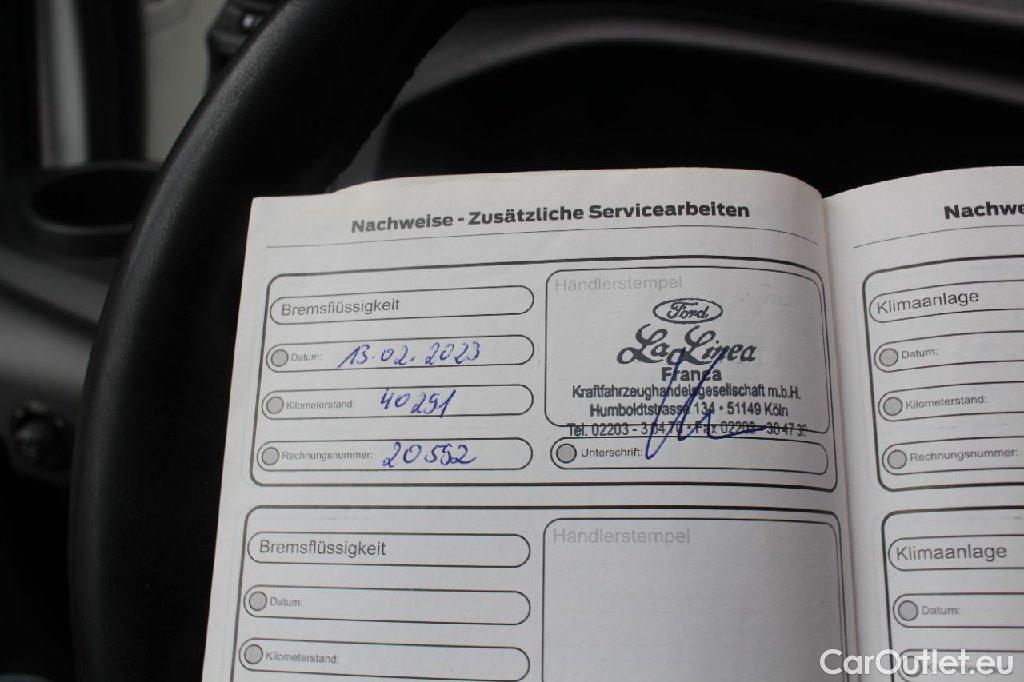 Nachweise - Zusätzliche Servicearbeiten
Bremsflüssigkeit
Datum: 13.02.2023
Kilometerstand: 40291
Rechnungsnummer: 20552
Händlerstempel
Ford
La Linea
Franca
Kraftfahrzeughandelsgesellschaft m.b.H.
Humboldtstrasse 134 • 51149 Köln
Tel. 02203 - • Fax 02203
Unterschrift:
Bremsflüssigkeit
Datum:
Kilometerstand:
Händlerstempel
Nachwe
Klimaanlage
Datum:
Kilometerstand:
Rechnungsnummer:
Klimaanlage
Datum:
CarOutlet.eu